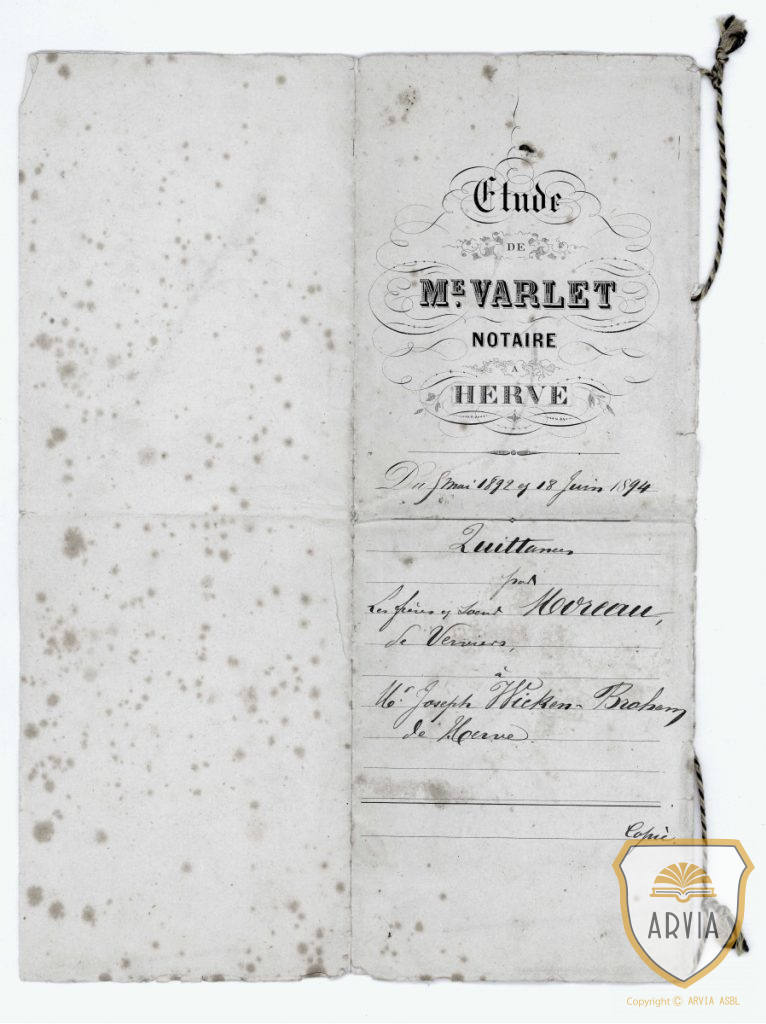 Etude
DE
ME. VARLET
NOTAIRE
A
HERVE
Du 5 mai 1892 et 18 Juin 1894
Quittances
par
Les frères et soeurs Moreau,
de Verviers,
à
Mr. Joseph Wicken-
de Herve
Copie.
ARVIA
Copyright © ARVIA ASBL